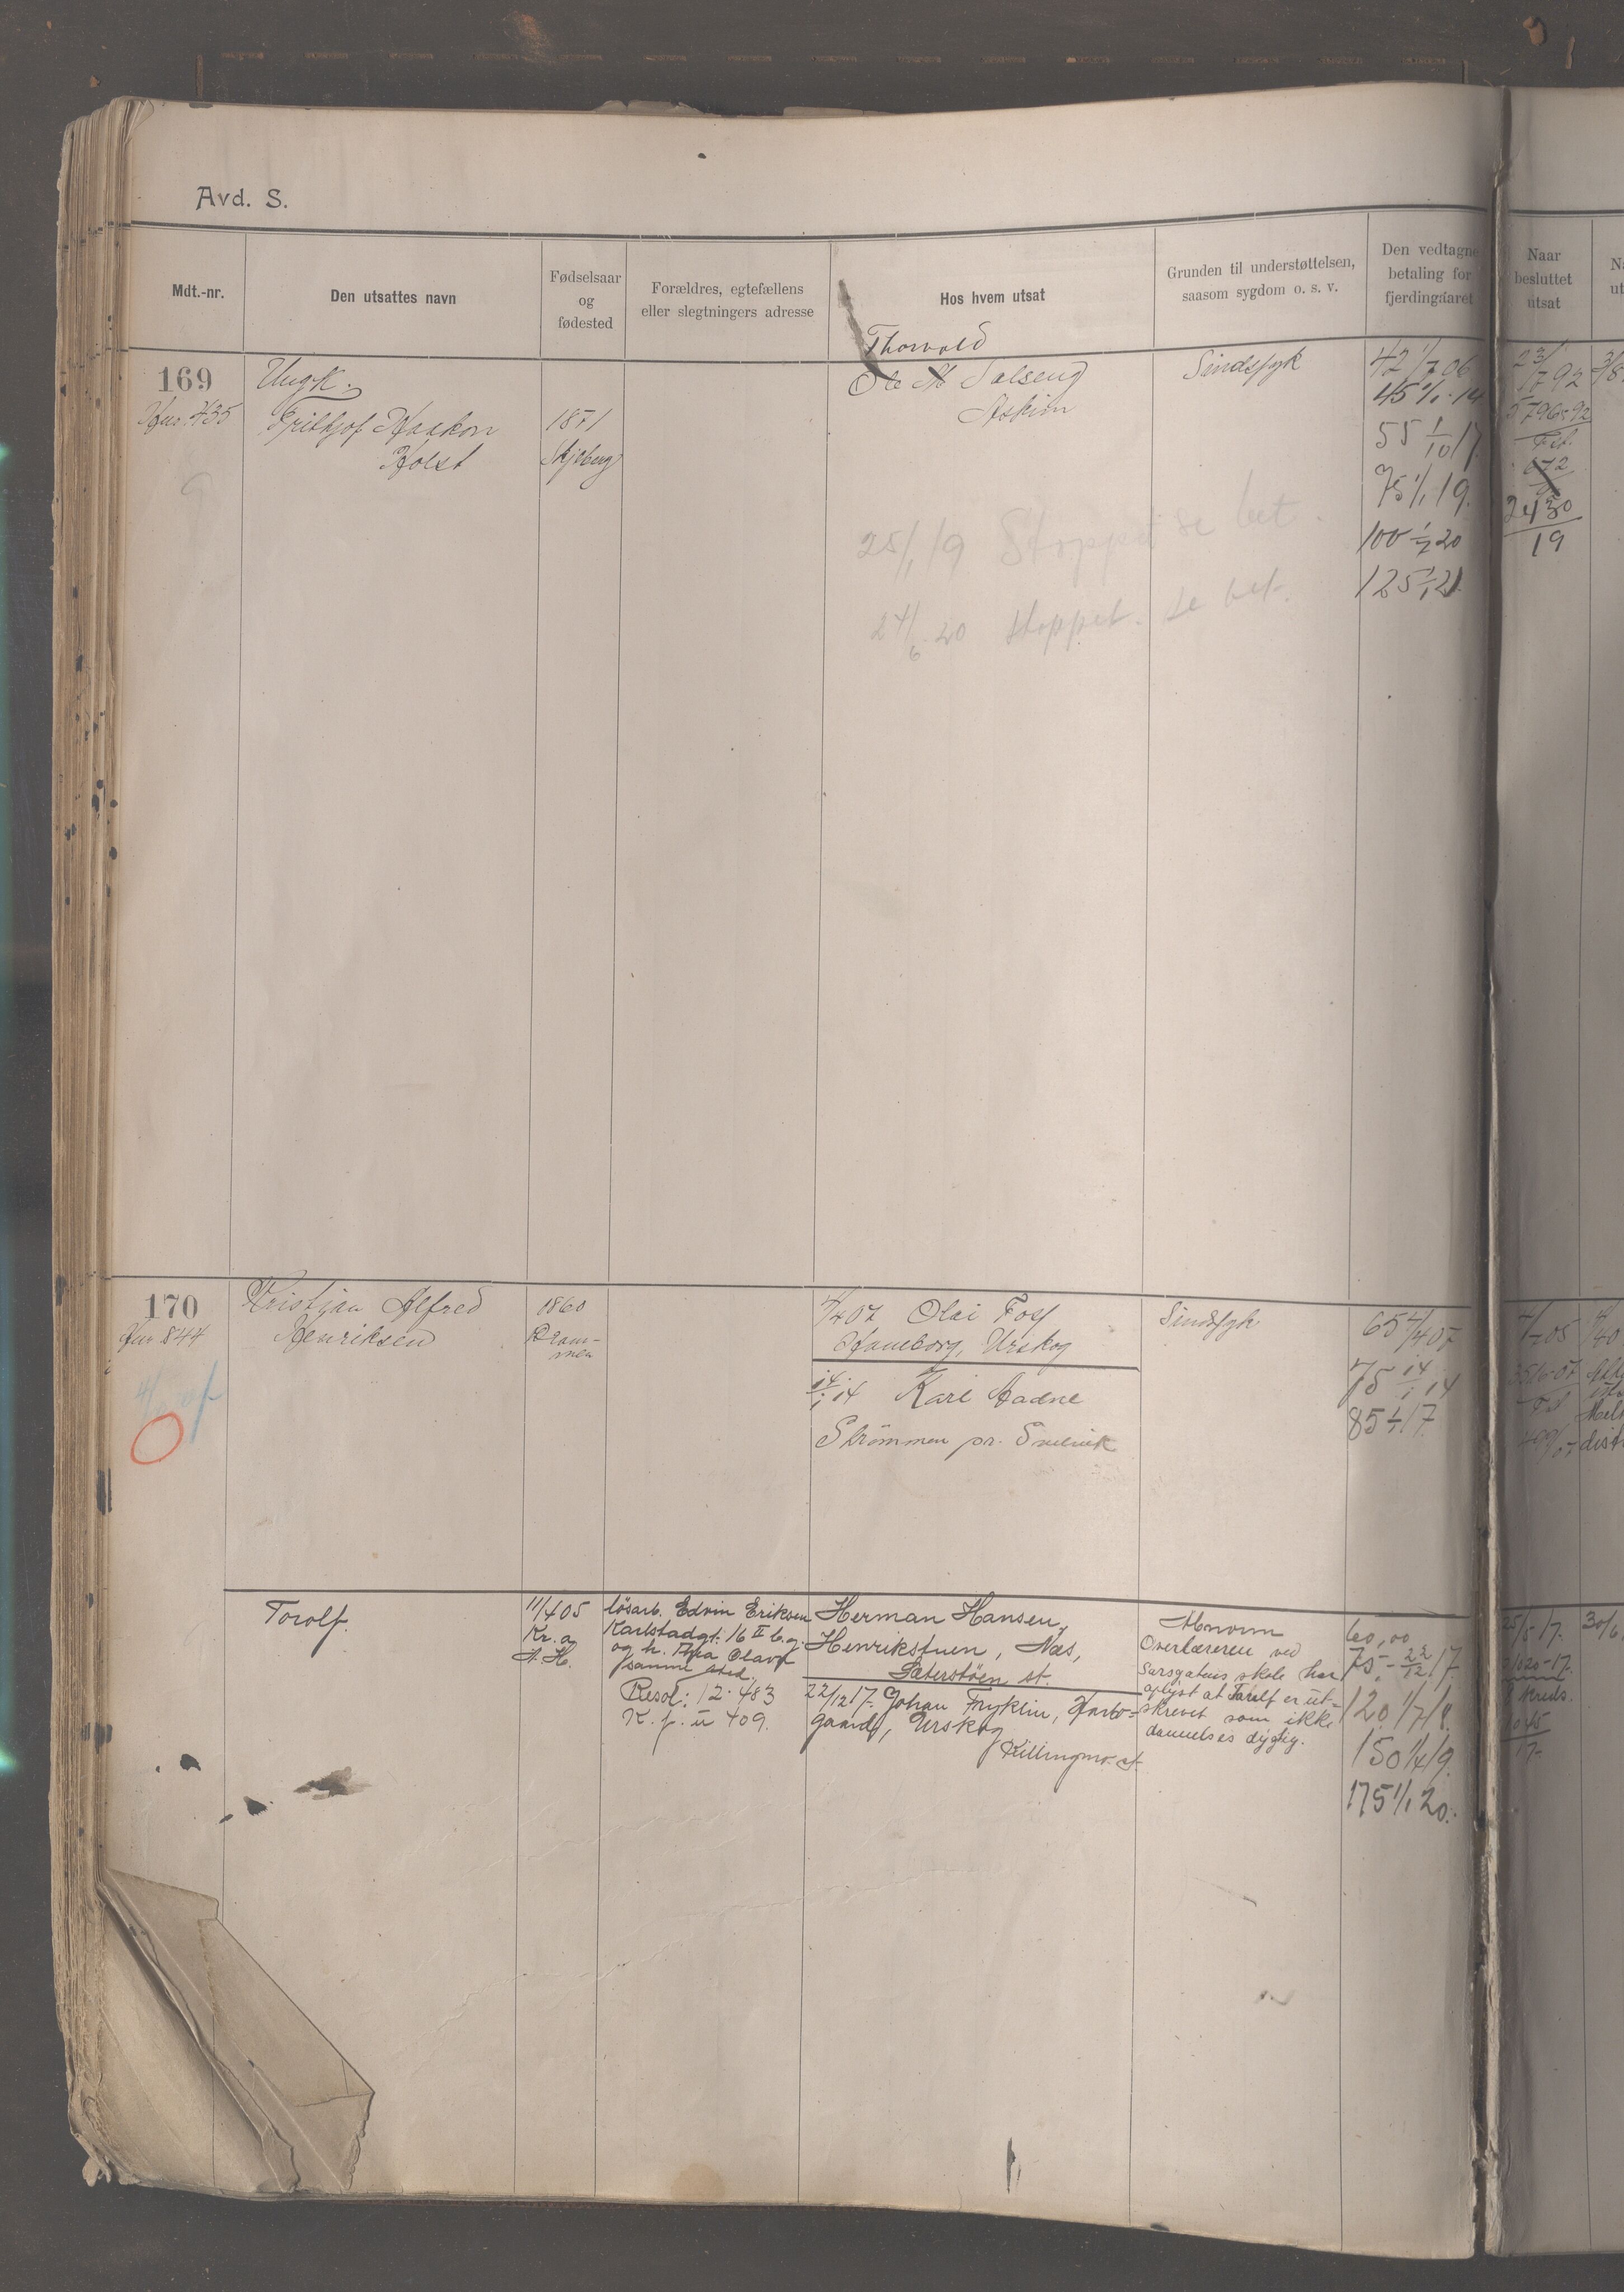 Avd. S.
Mdt.-nr.
Den utsattes navn
Fødselsaar
og
fødested
Forældres, egtefællens
eller slegtningers adresse
Hos hvem utsat
Grunden til understøttelsen,
saasom sygdom o. s. v.
Den vedtagne
betaling for
fjerdingåaret
Naar
besluttet
utsat
169
435
Ungk.
Frithjof Haakon
Holst
1871
Skjeberg
Thorvald
Ole Solseng
Askim
25/1 19 Stoppet se bet.
24/6 20 stoppet. se bet.
Sindssyk
42 1/7 06
45 1/1 14
55 1/10 17
75 1/1 19
100 1/7 20
125 1/1 21
23/7 92
5796-92
2430
19
170
844
Kristian Alfred
Henriksen
1860
Dram-
men
4/4 07 Olai Foss
Haneborg, Urskog
14/1 14 Karl Aadne
Strömmen pr.
Sindssyk
65 4/4 07
75 14/1 14
85 1/1 17
Torolf.
11/4 05
Kr.a
løsarb. Edvin Eriksen
Karlstadgt. 16 II b.g.
og h. Olava
samme sted.
Resol: 12.483
K. f. u 409.
Herman Hansen,
Henrikstuen, Næs,
Sæterstøen st.
22/12 17. Johan Fryklin,
gaard, Urskog
Killingmo. st.
Abnorm
Overlæreren ved
Sarsgatens skole har
oplyst at Torolf er ut-
skrevet som ikke
dannelses dygtig.
60,00
75,- 22/12 17.
120 1/7 18.
150 1/4 19.
175 1/1 20.
25/5 17.
1020-17.
Kreds.
1045
17.